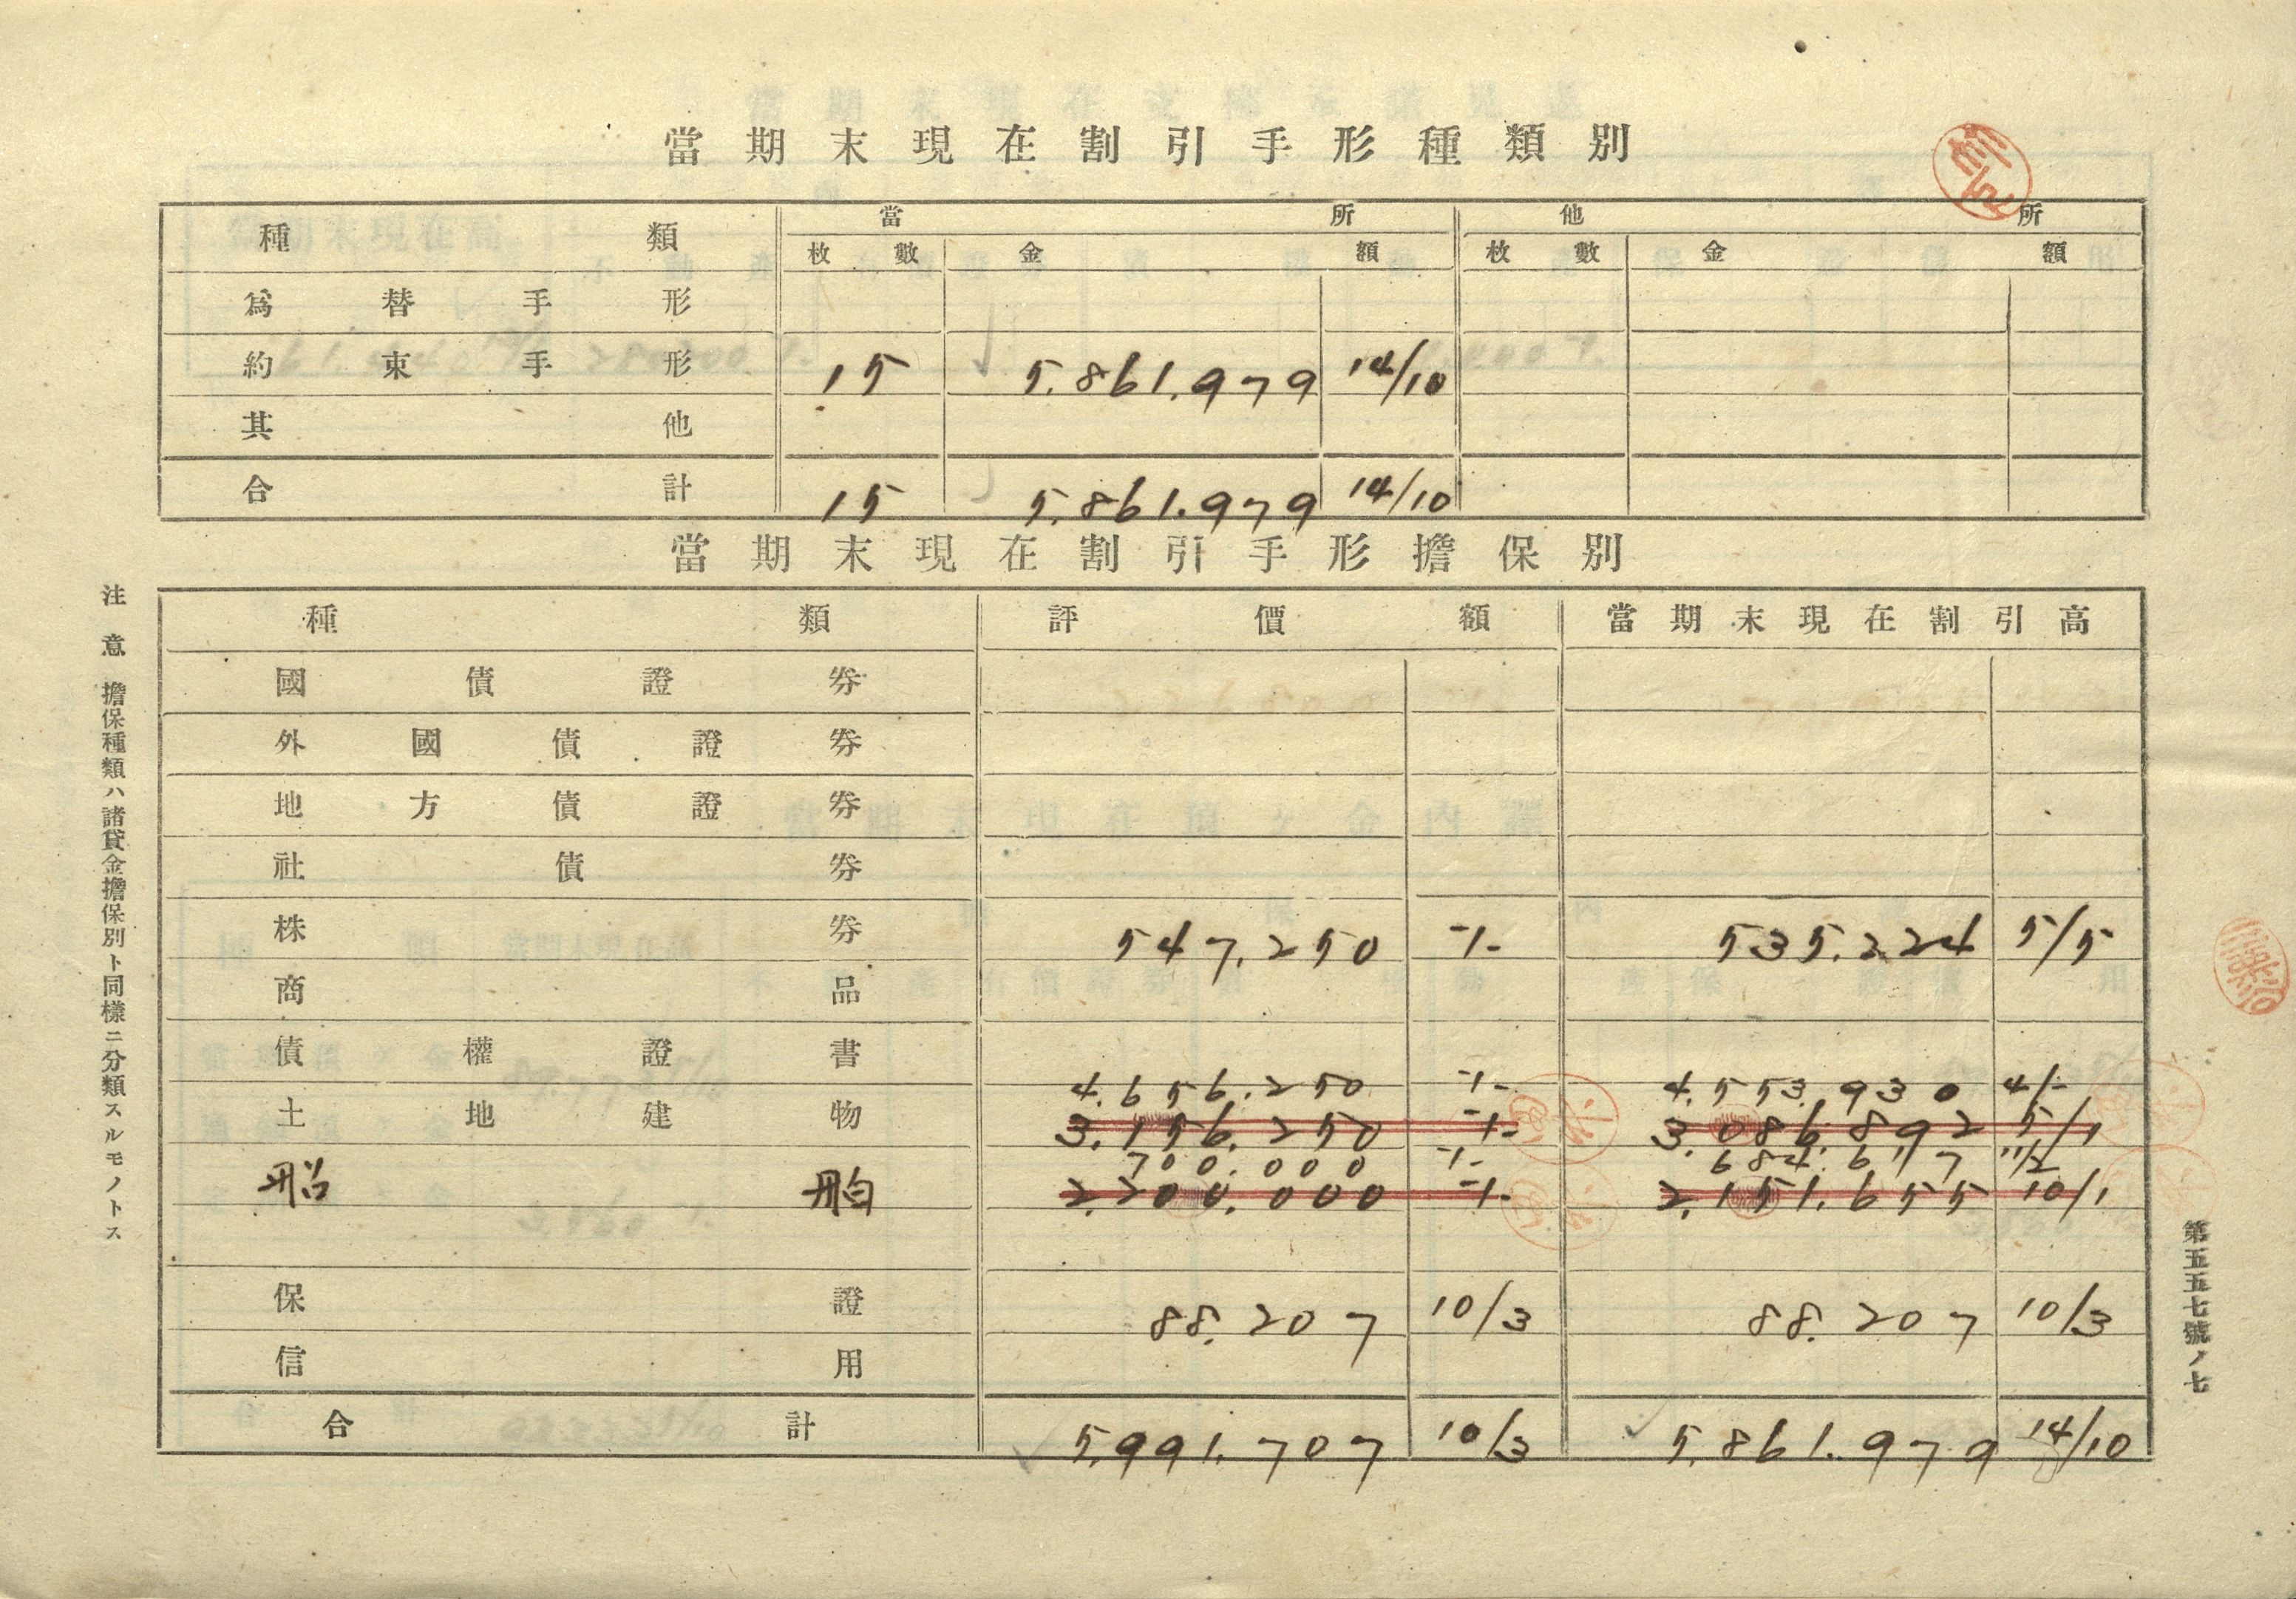 當期末現在割引手形種類別
種類 當所 他所
枚數 金額 枚數 金額
爲替手形
約束手形 15 5.861.979 14/10
其他
合計 15 5.861.979 14/10
當期末現在割引手形擔保別
種類 評價額 當期末現在割引高
國債證券
外國債證券
地方債證券
社債券
株券 547.250 -/- 535.224 5/5
商品
債權證書
4.656.250 -/- 4.553.930 4/-
土地建物 3.156.250 -/- 3.086.892 5/1
700.000 -/- 684.617 11/2
船舶 2.200.000 -/- 2.151.655 10/1
保證 88.207 10/3 88.207 10/3
信用
合計 5.991.707 10/3 5.861.979 14/10
注意 擔保種類ハ諸貸金擔保別ト同樣ニ分類スルモノトス
第五五七號ノ七